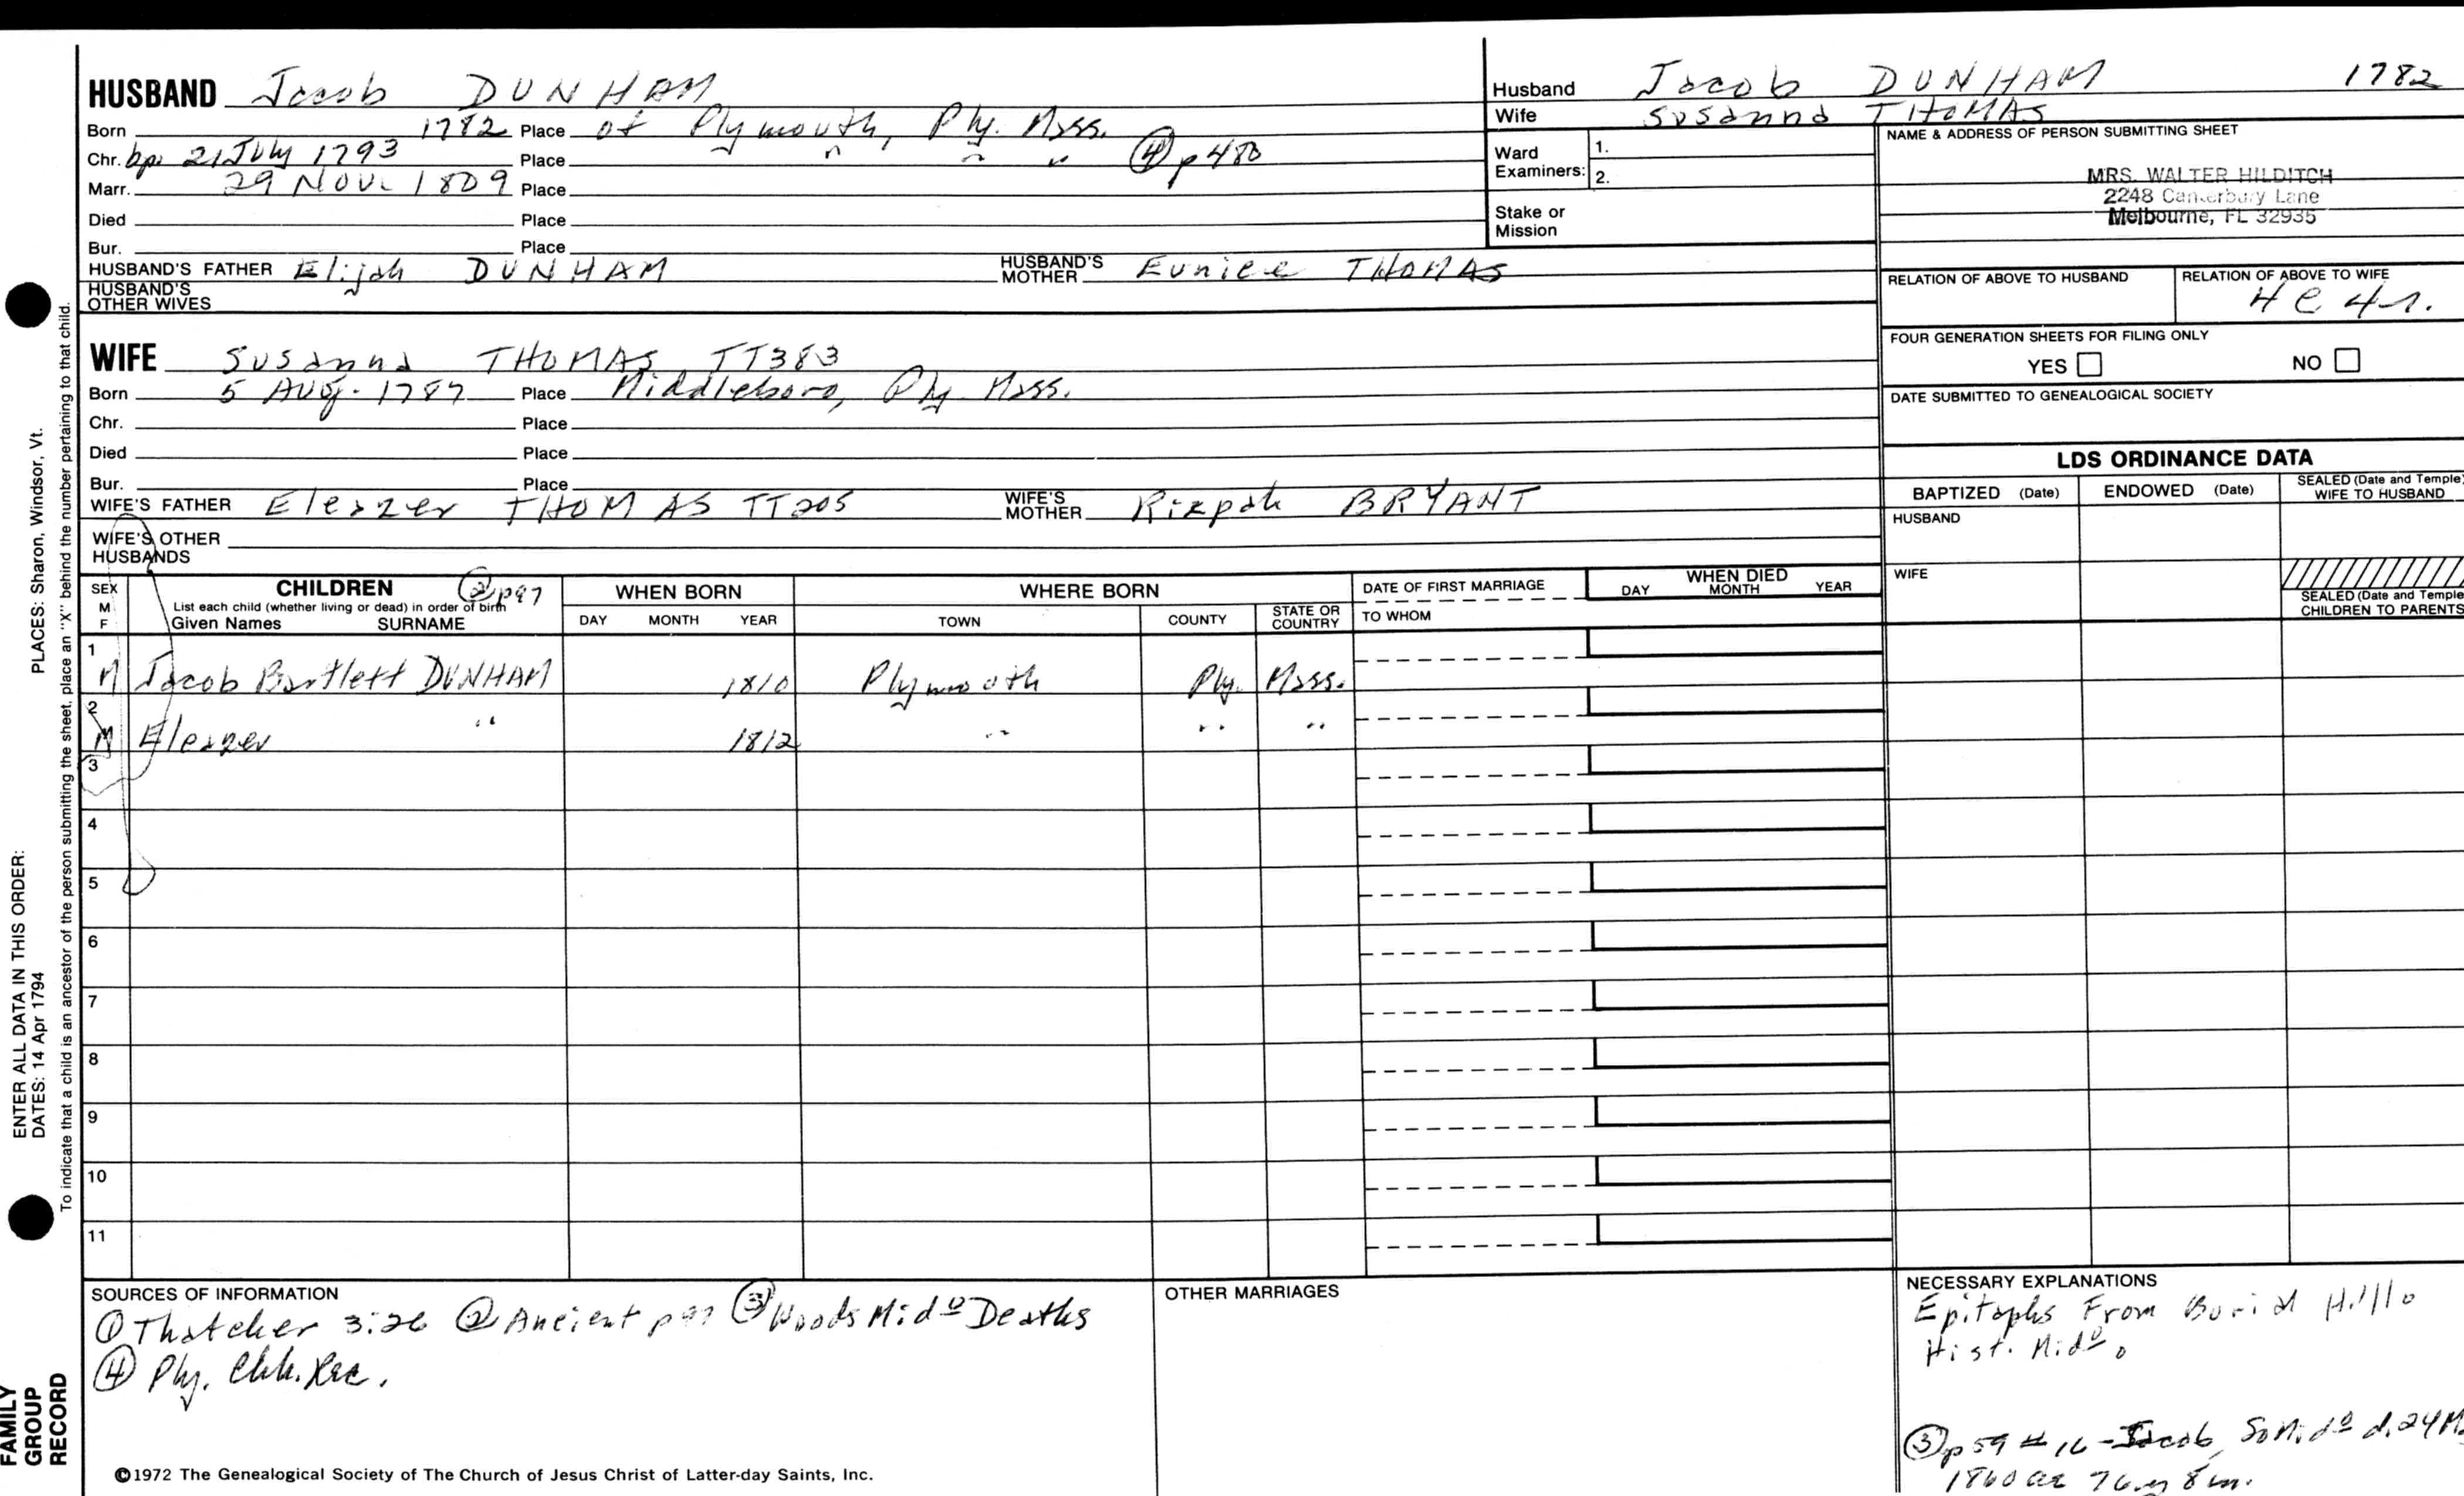 HUSBAND Jacob DUNHAM
Born 1782 Place of Plymouth, Ply. Mass.
Chr. bp. 21 July 1793 Place " " " ④ p 480
Marr. 29 Nov. 1809 Place
Died Place
Bur. Place
HUSBAND'S FATHER Elijah DUNHAM HUSBAND'S MOTHER Eunice THOMAS
HUSBAND'S OTHER WIVES
Husband Jacob DUNHAM 1782
Wife Susanna THOMAS
Ward Examiners: 1.
2.
Stake or Mission
NAME & ADDRESS OF PERSON SUBMITTING SHEET
MRS. WALTER HILDITCH
2248 Canterbury Lane
Melbourne, FL 32935
RELATION OF ABOVE TO HUSBAND RELATION OF ABOVE TO WIFE
4 C 4 r.
FOUR GENERATION SHEETS FOR FILING ONLY
YES NO
DATE SUBMITTED TO GENEALOGICAL SOCIETY
WIFE Susanna THOMAS TT383
Born 5 Aug. 1787 Place Middleboro, Ply Mass.
Chr. Place
Died Place
Bur. Place
WIFE'S FATHER Eleazer THOMAS TT205 WIFE'S MOTHER Rizpah BRYANT
WIFE'S OTHER HUSBANDS
LDS ORDINANCE DATA
BAPTIZED (Date) ENDOWED (Date) SEALED (Date and Temple) WIFE TO HUSBAND
HUSBAND
WIFE
SEALED (Date and Temple) CHILDREN TO PARENTS
SEX M F CHILDREN ② p97 WHEN BORN WHERE BORN DATE OF FIRST MARRIAGE WHEN DIED
List each child (whether living or dead) in order of birth
Given Names SURNAME DAY MONTH YEAR TOWN COUNTY STATE OR COUNTRY TO WHOM DAY MONTH YEAR
1 M Jacob Bartlett DUNHAM 1810 Plymouth Ply. Mass.
2 M Eleazer " 1812 " " "
3
4
5
6
7
8
9
10
11
SOURCES OF INFORMATION
① Thatcher 3:26 ② Ancient p 97 ③ Woods Mido Deaths
④ Ply. Chh. Rec.
OTHER MARRIAGES
NECESSARY EXPLANATIONS
Epitaphs From Burial Hill
Hist. Mido
③ p 59 # 16 - Jacob, So Mido d. 24 M
1860 ae 76 y 8 m.
©1972 The Genealogical Society of The Church of Jesus Christ of Latter-day Saints, Inc.
PLACES: Sharon, Windsor, Vt.
ENTER ALL DATA IN THIS ORDER:
DATES: 14 Apr 1794
To indicate that a child is an ancestor of the person submitting the sheet, place an "X" behind the number pertaining to that child.
FAMILY
GROUP
RECORD